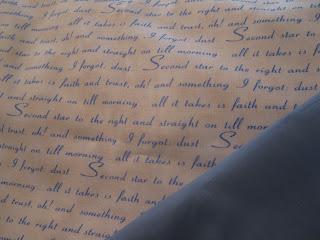 faith and trust, oh! and something I forgot: dust. Second star
till morning. all it takes is faith and trust, oh! and something I
and something I forgot: dust. Second star to the right and straight on till
faith and trust, oh! and something I forgot: dust. Second star to
star to the right and straight on till morning. all it takes is faith
and something I forgot: dust. Second star to the right and
all it takes is faith and trust, oh! and something I forgot: dust
and straight on till morning. all it takes is faith and t
Second star to the right and straight on till mor
trust, oh! and something I forgot: dust. Second
straight on till morning. all it takes is faith
I forgot: dust. Second star to the
morning. all it takes is faith and
trust, oh! and something
to the right and straight